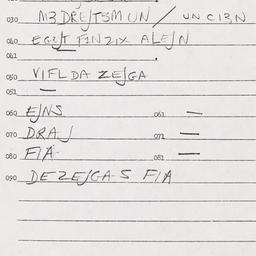 030 M3DRE/T3MUN / UNCI3N
040 EGE/T FINZIX ALE/N
041
050 VIFLDA ZE/GA
051 —
060 E/NS 061 —
070 DRA/ 071 —
080 FIA 081 —
090 DEZE/GA-S FIA